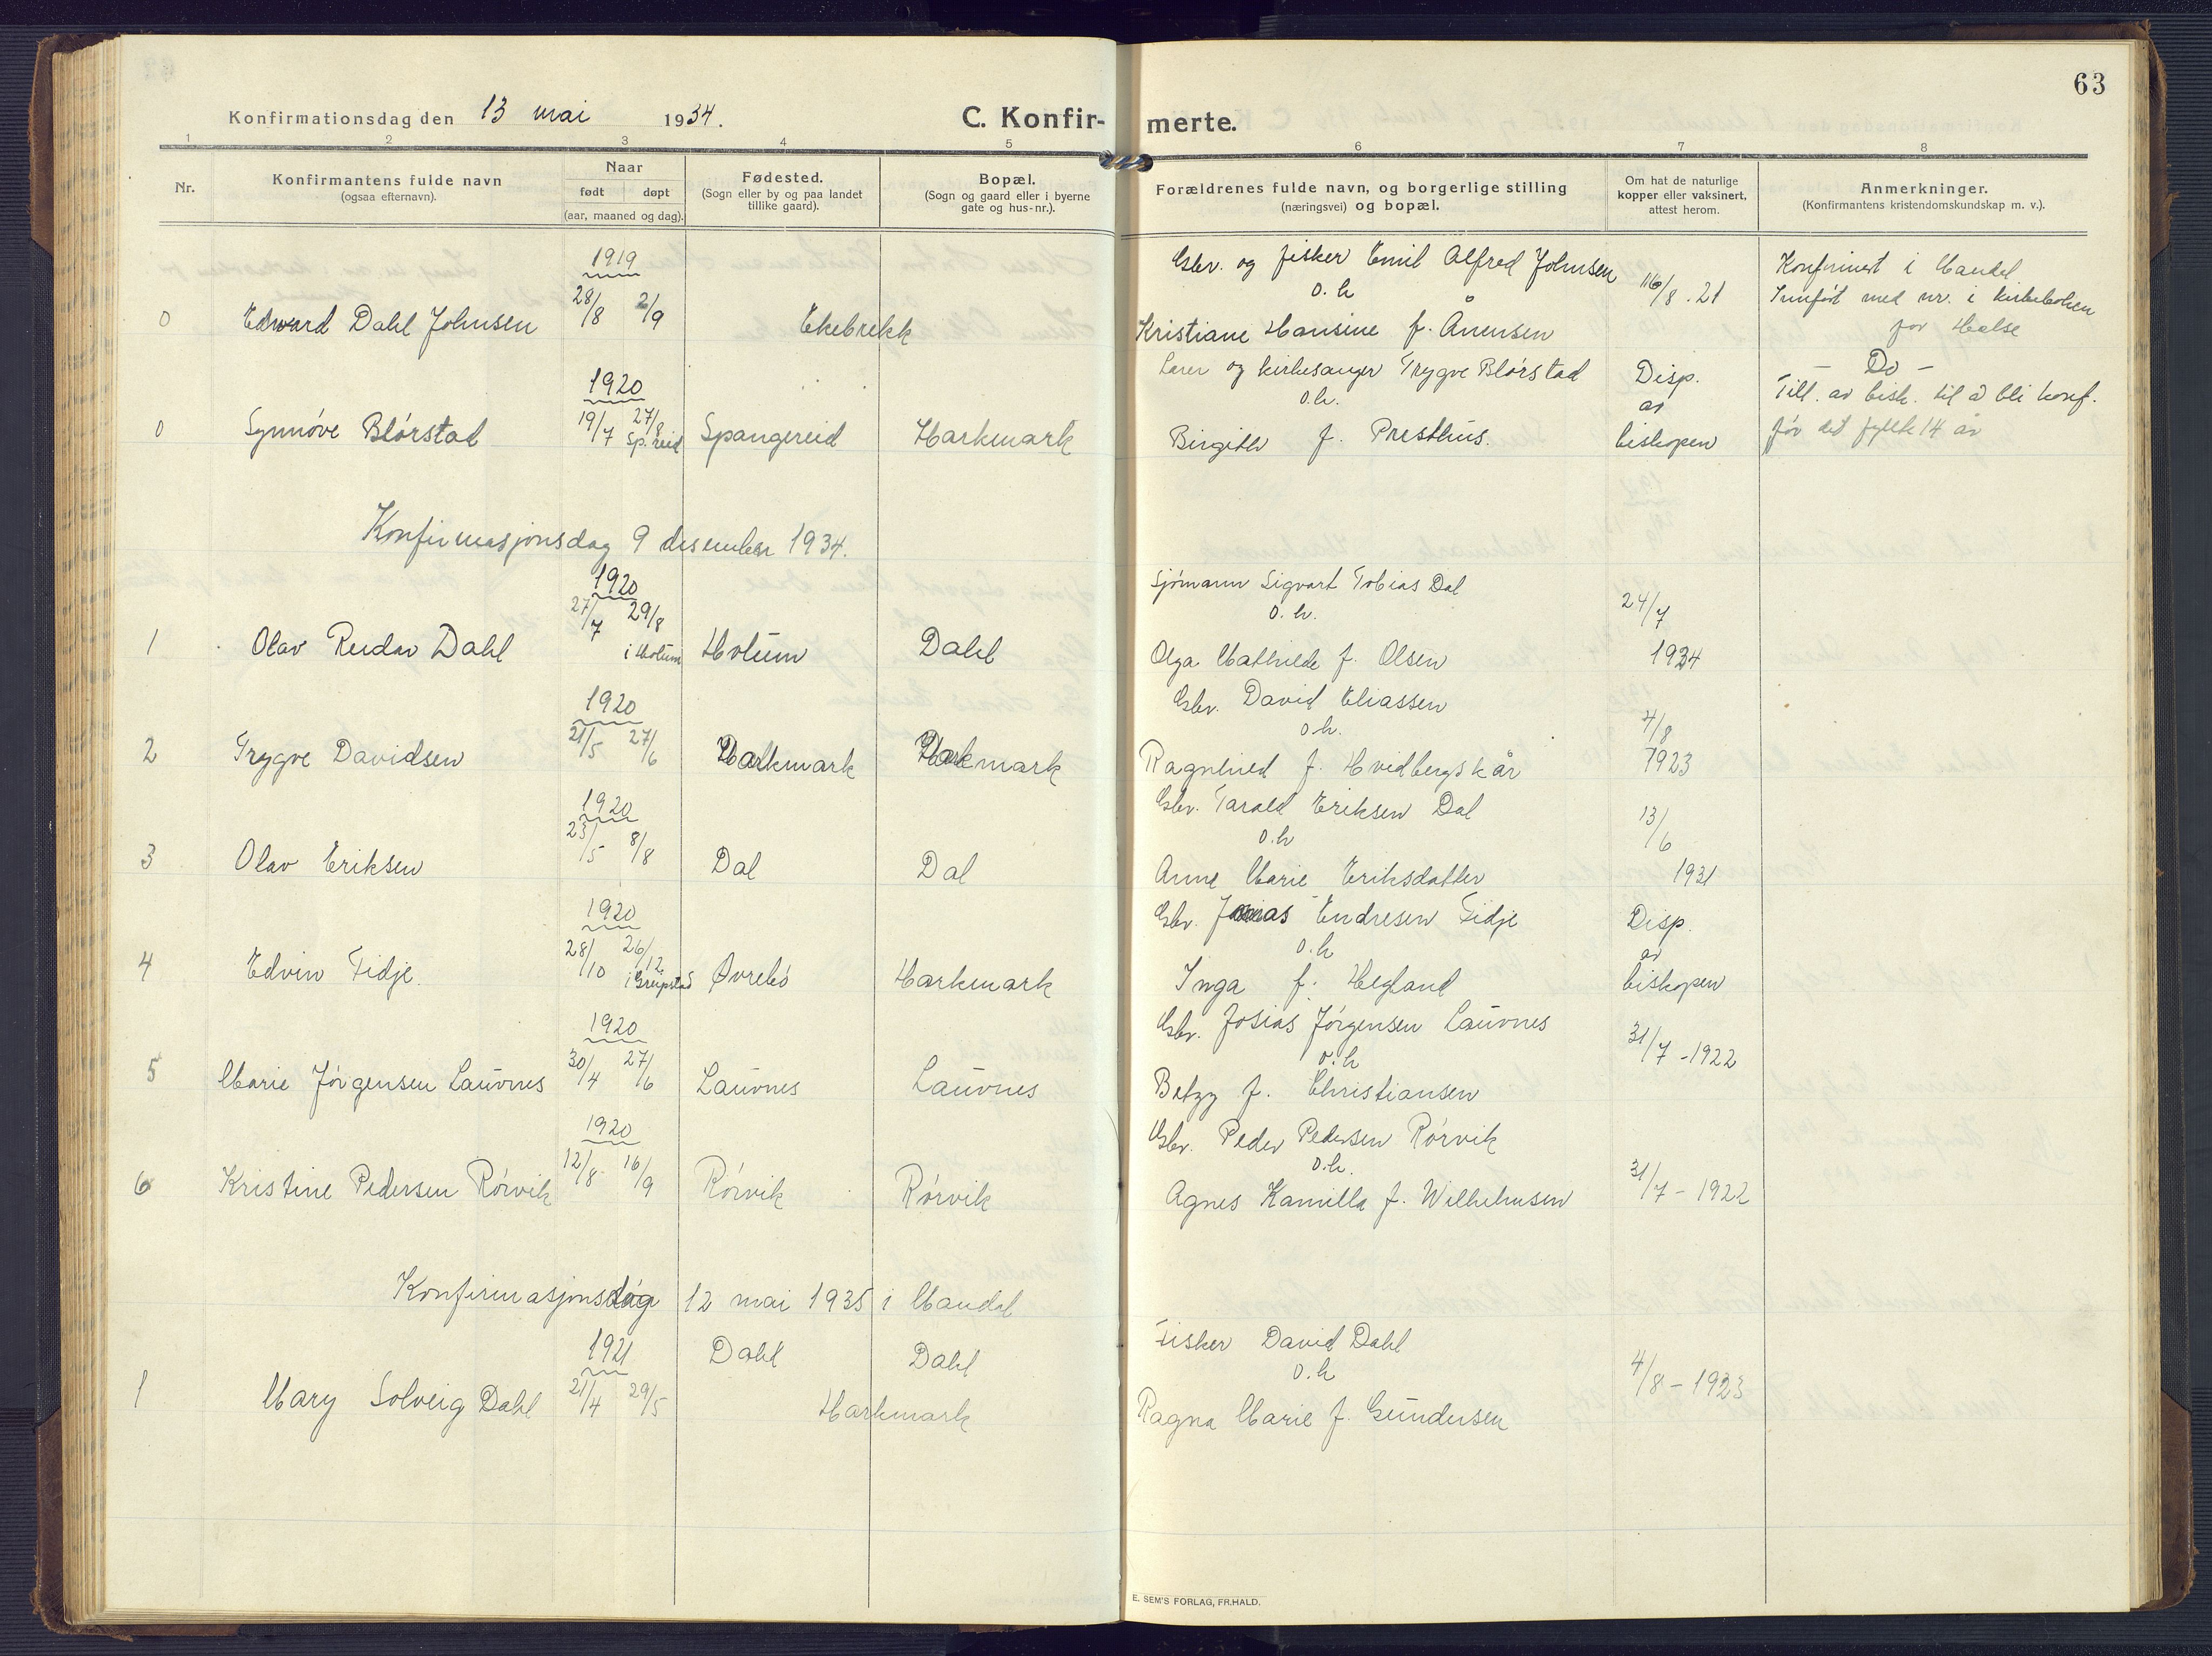 63
Konfirmationsdag den 13 mai 1934.
C. Konfir- merte.
1 2 3 4 5 6 7 8
Nr.
Konfirmantens fulde navn
(ogsaa efternavn).
Naar
født døpt
(aar, maaned og dag).
Fødested.
(Sogn eller by og paa landet
tillike gaard).
Bopæl.
(Sogn og gaard eller i byerne
gate og hus-nr.).
Forældrenes fulde navn, og borgerlige stilling
(næringsvei) og bopæl.
Om hat de naturlige
kopper eller vaksinert,
attest herom.
Anmerkninger.
(Konfirmantens kristendomskundskap m. v.).
1919
0 Edward Dahl Johnsen 28/8 2/9 Ekebrekk
Gbr. og fisker Emil Alfred Johnsen
o. h
Kristiane Hansine f. Ånensen
16/8 . 21
Konfirmert i Mandal
Innført med nr. i kirkeboken
for Halse
1920
0 Synnøve Blørstad 19/7 27/8 Sp.reid Spangereid Harkmark
Lærer og kirkesanger Trygve Blørstad
o.h.
Birgithe f. Presthus.
Disp.
av
biskopen
— Do —
Till. av bisk. til å bli konf.
før det fyllte 14 år
Konfirmasjonsdag 9 desember 1934.
1920
1 Olav Reidar Dahl 27/7 29/8 i Holum Holum Dahl
Sjømann Sigvart Tobias Dal
o. h.
Olga Mathilde f. Olsen
24/7
1934
1920
2 Trygve Davidsen 21/5 27/6 Harkmark Harkmark
Gbr. David Eliassen
o.h.
Ragnhild f. Hvidbergskår
4/8
1923
1920
3 Olav Eriksen 23/5 8/8 Dal Dal
Gbr. Tarald Eriksen Dal
o.h
Anne Marie Eriksdatter
13/6
1931
1920
4 Edvin Fidje 28/10 26/12 i Greipstad Øvrebø Harkmark
Gbr. Jonas Endresen Fidje
o.h
Inga f. Hegland
Disp.
av
biskopen
1920
5 Marie Jørgensen Lauvnes 30/4 27/6 Lauvnes Lauvnes
Gbr. Josias Jørgensen Lauvnes
o.h
Betzy f. Christiansen
31/7 - 1922
1920
6 Kristine Pedersen Rørvik 12/8 16/9 Rørvik Rørvik
Gbr. Peder Pedersen Rørvik
o.h.
Agnes Kamilla f. Wilhelmsen
31/7 - 1922
Konfirmasjonsdag 12 mai 1935 i Mandal
1921
1 Mary Solveig Dahl 21/4 29/5 Dahl Dahl
Harkmark
Fisker David Dahl
o.h
Ragna Marie f. Gundersen
4/8 - 1923
E. SEM'S FORLAG, FR.HALD.